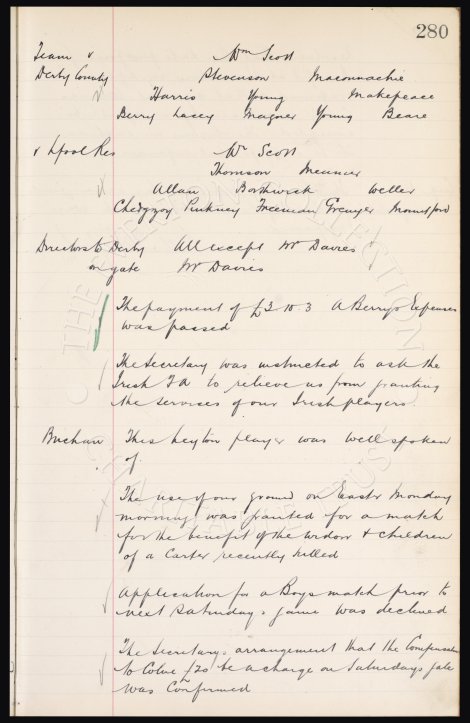 280
Team v Wm Scott
Derby County Stevenson Maconnachie
Harris Young Makepeace
Berry Lacey Magner Young Beare
v Lpool Res Wm Scott
Thomson Meunier
Allan Borthwick Weller
Chedgzoy Pinkney Freeman Grenyer Mountford
Directors to Derby All except Mr Davies
on gate Mr Davies
The payment of £3-10-3 A Berry's Expenses
was passed
The Secretary was instructed to ask the
Irish FA to relieve us from granting
the services of our Irish players.
Buchan This Leyton player was well spoken
of.
The use of our ground on Easter Monday
morning was granted for a match
for the benefit of the widow & children
of a Carter recently killed
Application for a Boys match prior to
next Saturday's game was declined
The Secretary's arrangement that the Compensation
to Colne £20 be a charge on Saturdays gate
was Confirmed